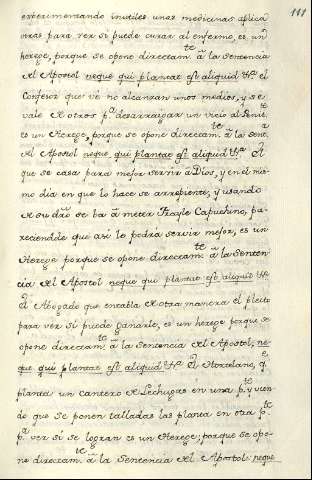 111
experimentando inutiles unas medicinas aplicà
otras para ver si puede curar al enfermo, es un
herege, porque se opone directam.te à la Sentencia
del Apostol neque qui plantat est aliquid &.a el
Confesor que vè no alcanzan unos medios, y se
vale de otros p.a desarraigar un vicio al Penit.te
es un Herege, porque se opone directam.te à la sent.a
del Apostol neque qui plantat est aliquid &.a El
que se casa para mejor servir à Dios, y en el mis-
mo dia en que lo hace se arrepiente, y usando
de su dro se ba à meter Frayle Capuchino, pa-
reciendole que asi le podrà servir mejor, es un
Herege porque se opone directam.te à la Senten-
cia del Apostol neque qui plantat est aliquid &.a
El Abogado que entabla de otra manera el pleito
para ver si puede ganarle, es un herege porque se
opone directam.te à la Sentencia del Apostol, ne-
que qui plantat est aliquid &.a El Hortelano, q.e
planta un cantero de Lechugas en una p.te y vien-
do que se ponen talladas las planta en otra p.te
p.a ver si se logran es un Herege, porque se opo-
ne directam.te à la Sentencia del Apostol neque